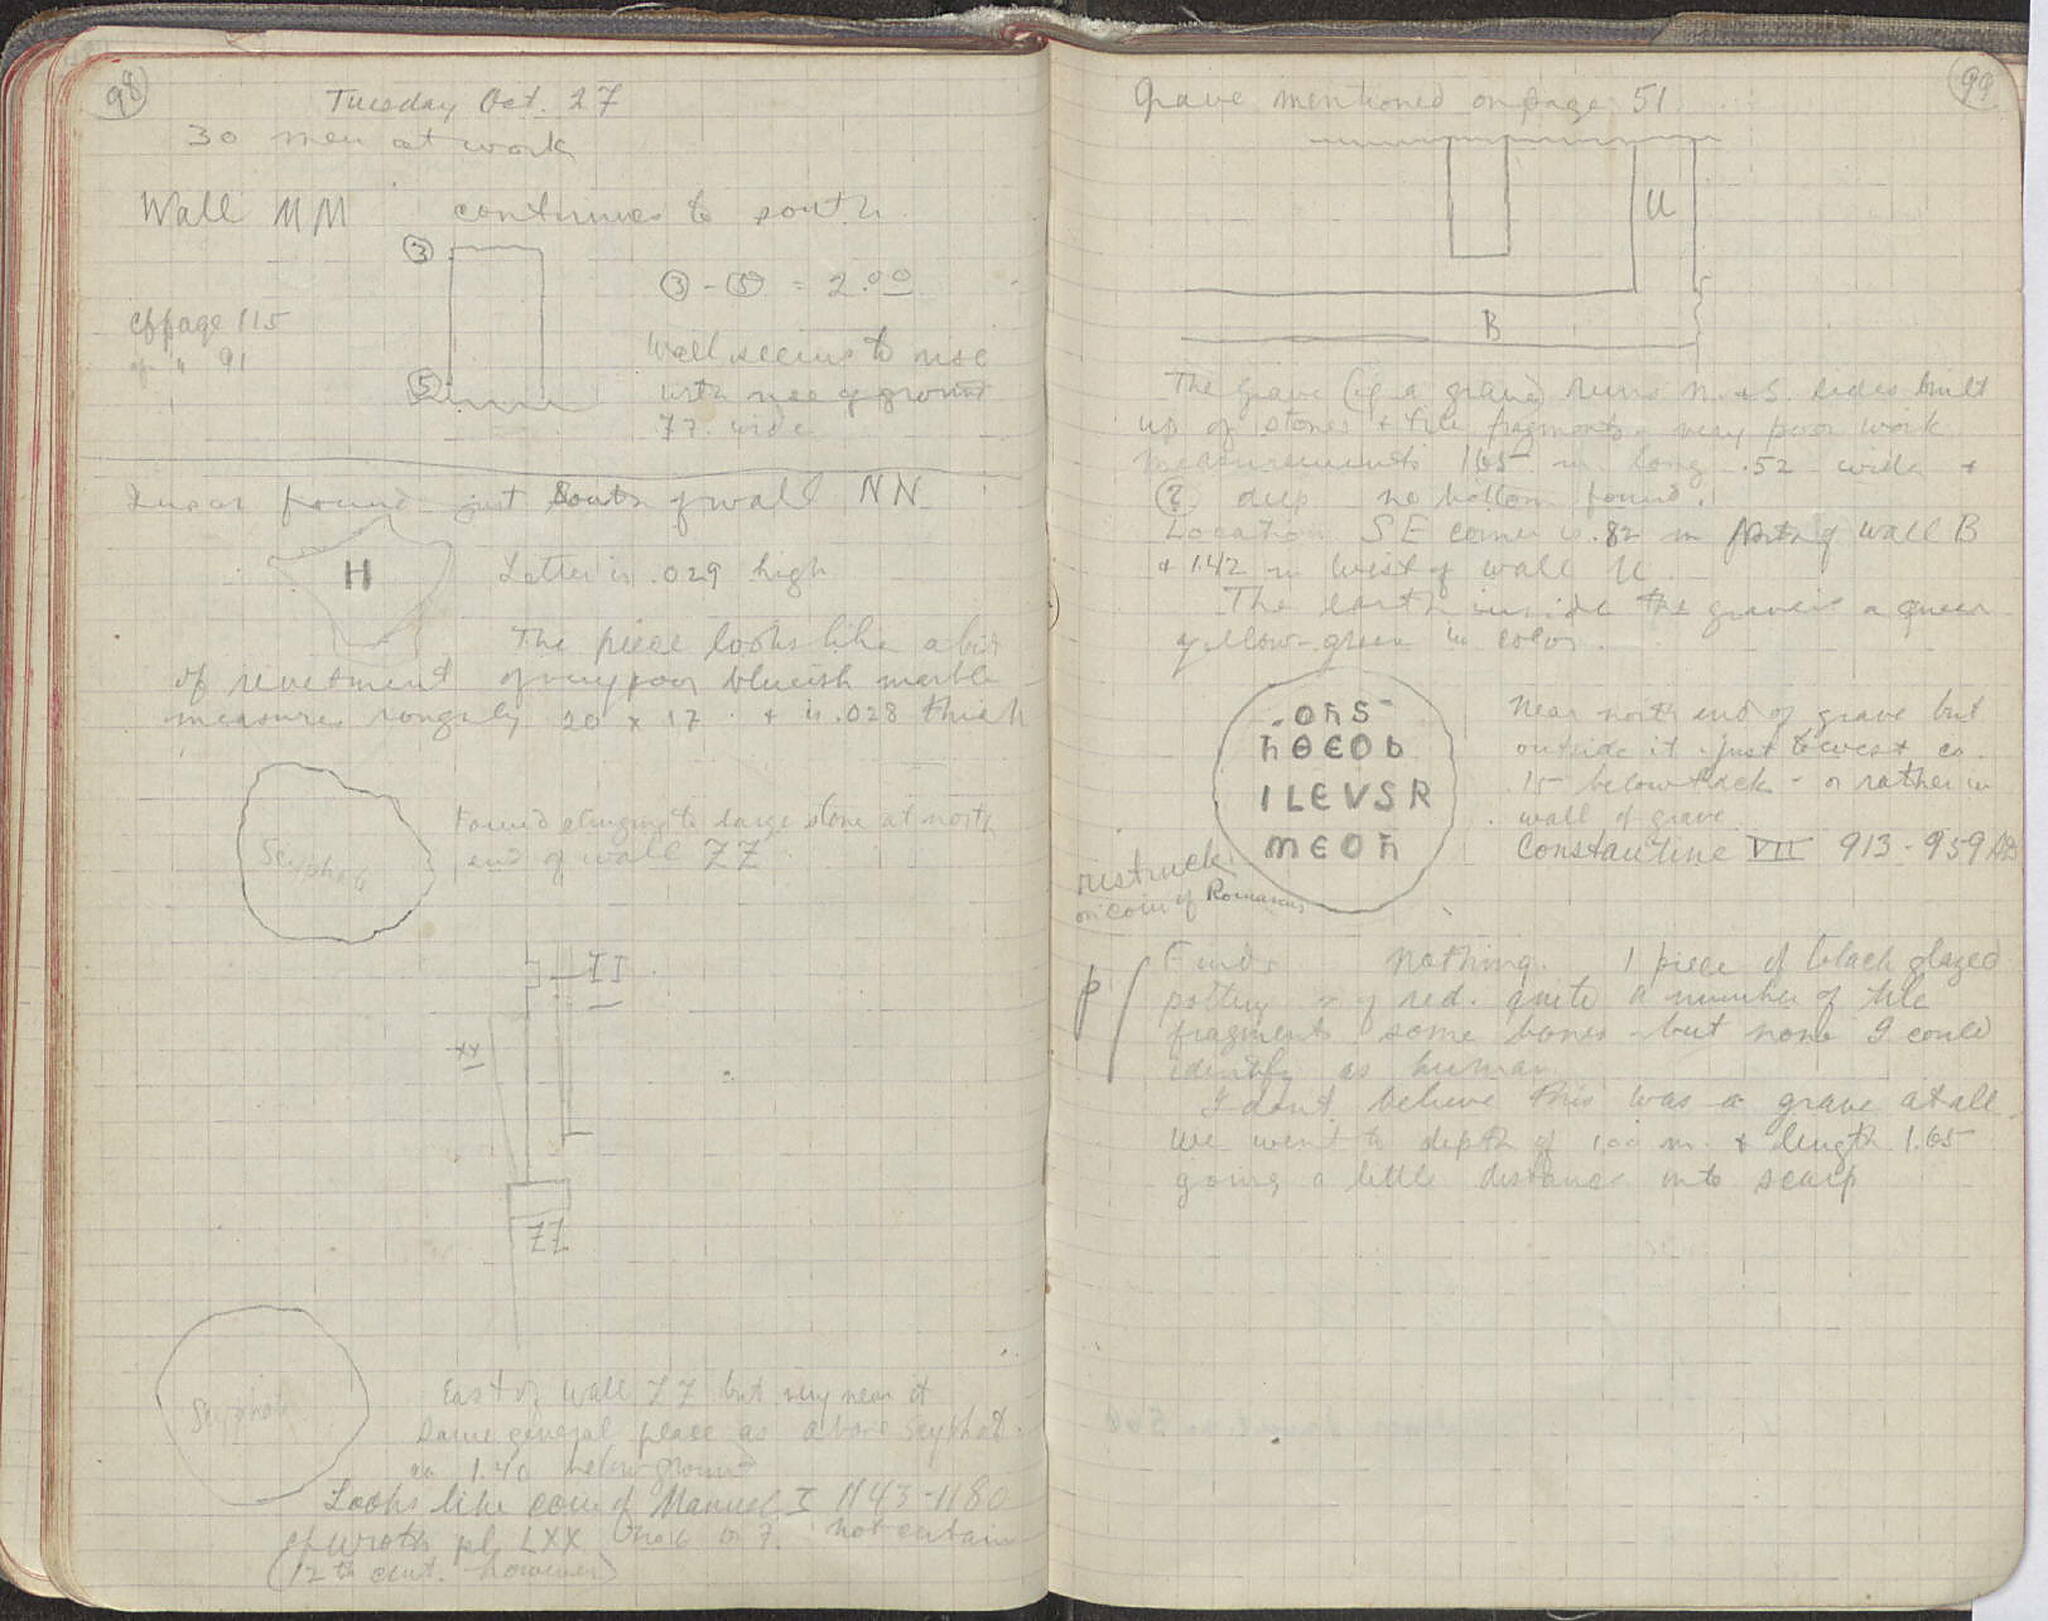 98
Tuesday Oct. 27
30 men at work
Wall MM continues to south
3
3 - 5 = 2.00
cf page 115
" 91
5
Wall seems to rise
with rise of ground
.77 wide
found just South of wall NN
H
Letter is .029 high
The piece looks like a bit
of revetment of very poor blueish marble
measures roughly 20 x 17 + is .028 thick
Scyphate
Found clinging to large stone at north
end of wall ZZ
II
XX
ZZ
Scyphate
East of wall ZZ but very near it
Same general place as above Scyphate
ca 1.40 below ground
Looks like coin of Manuel I 1143-1180
cf Wroth pl. LXX no 6 or 7. not certain
(12th cent. however)
99
Grave mentioned on page 51
U
B
The grave (if a grave) runs N. + S. sides built
up of stones + tile fragments very poor work
measurements 1.65 m long .52 wide +
(?) deep no bottom found.
Location SE corner is .82 m north of wall B
+ 1.42 m west of wall U.
The earth inside the grave is a queer
yellow-green in color.
.OhS-
hΘЄOb
ILEVSR
mЄOh
Near north end of grave but
outside it just to west ca
.15 below track - or rather in
wall of grave
Constantine VII 913-959 AD
restruck
on coin of Romanus
P
Finds Nothing. 1 piece of black glazed
pottery of red. quite a number of tile
fragments some bones - but none I could
identify as human
I don't believe this was a grave at all.
We went to depth of 1.00 m. + length 1.65
going a little distance into scarp